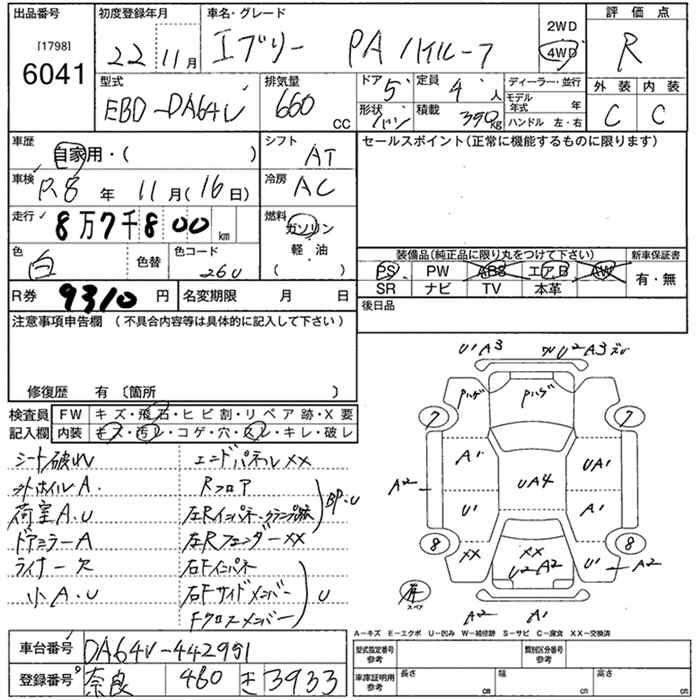 出品番号 初度登録年月 車名・グレード 2WD 評価点
[1798] 6041 22年11月 エブリー PA ハイルーフ 4WD R
型式 排気量 ドア 5 定員 4人 ディーラー・並行 外装 内装
EBD-DA64V 660cc 形状 バン 積載 350kg モデル年式 年 C C
ハンドル 左・右
車歴 自家用・( ) シフト AT セールスポイント(正常に機能するものに限ります)
車検 R8年11月(16日) 冷房 AC
走行 8万7千800km 燃料 ガソリン
軽・油
( )
色 白 色替 色コード 26U
装備品(純正品に限り丸をつけて下さい) 新車保証書
PS PW ABS エアB AW 有・無
SR ナビ TV 本革
R券 9310円 名変期限 月 日 後日品
注意事項申告欄 (不具合内容等は具体的に記入して下さい)
修復歴 有 〔箇所 〕
検査員 FW キズ・飛石・ヒビ割・リペア跡・X要
記入欄 内装 キズ・汚レ・コゲ・穴・スレ・キレ・破レ
シート破れ エンドパネルXX
外ホイルA. Rフロア
荷室A.U
ドアミラーA 左RフェンダーXX
BP.U
ライナー欠 右Fインパネ
小A.U 右Fサイドメンバー
Fクロスメンバー
U
U'A3 U2A3
7 7
A' UA4 UA'
A2 U' A'
8 8
XX XX U2A2 U' A2
スペア
A2 A'
A-キズ E-エクボ U-凹み W-補修跡 S-サビ C-腐食 XX-交換済
車台番号 DA64V-442991
型式指定番号 参考 類別区分番号 参考
登録番号 奈良 480 き 3933
車庫証明用 参考 長さ cm 幅 cm 高さ cm